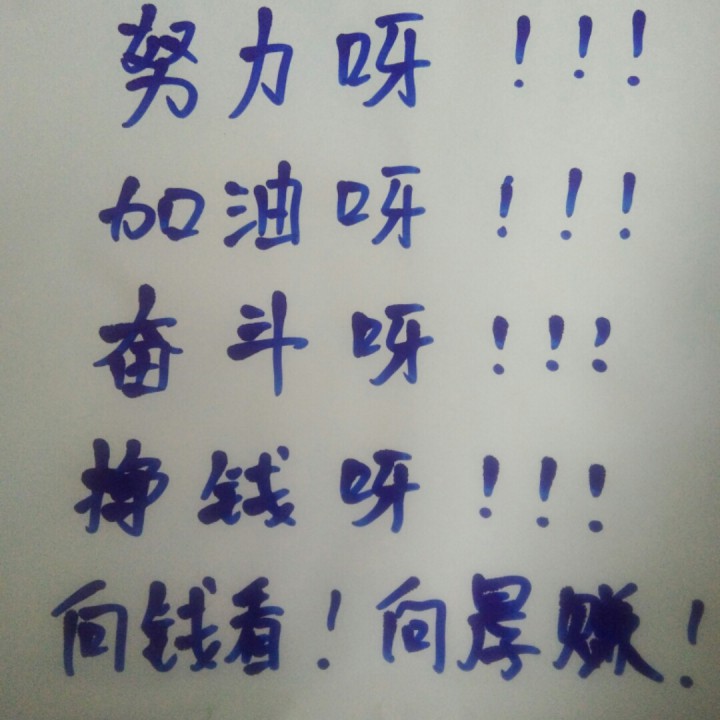 努力呀！！！
加油呀！！！
奋斗呀！！！
挣钱呀！！！
向钱看！向厚赚！